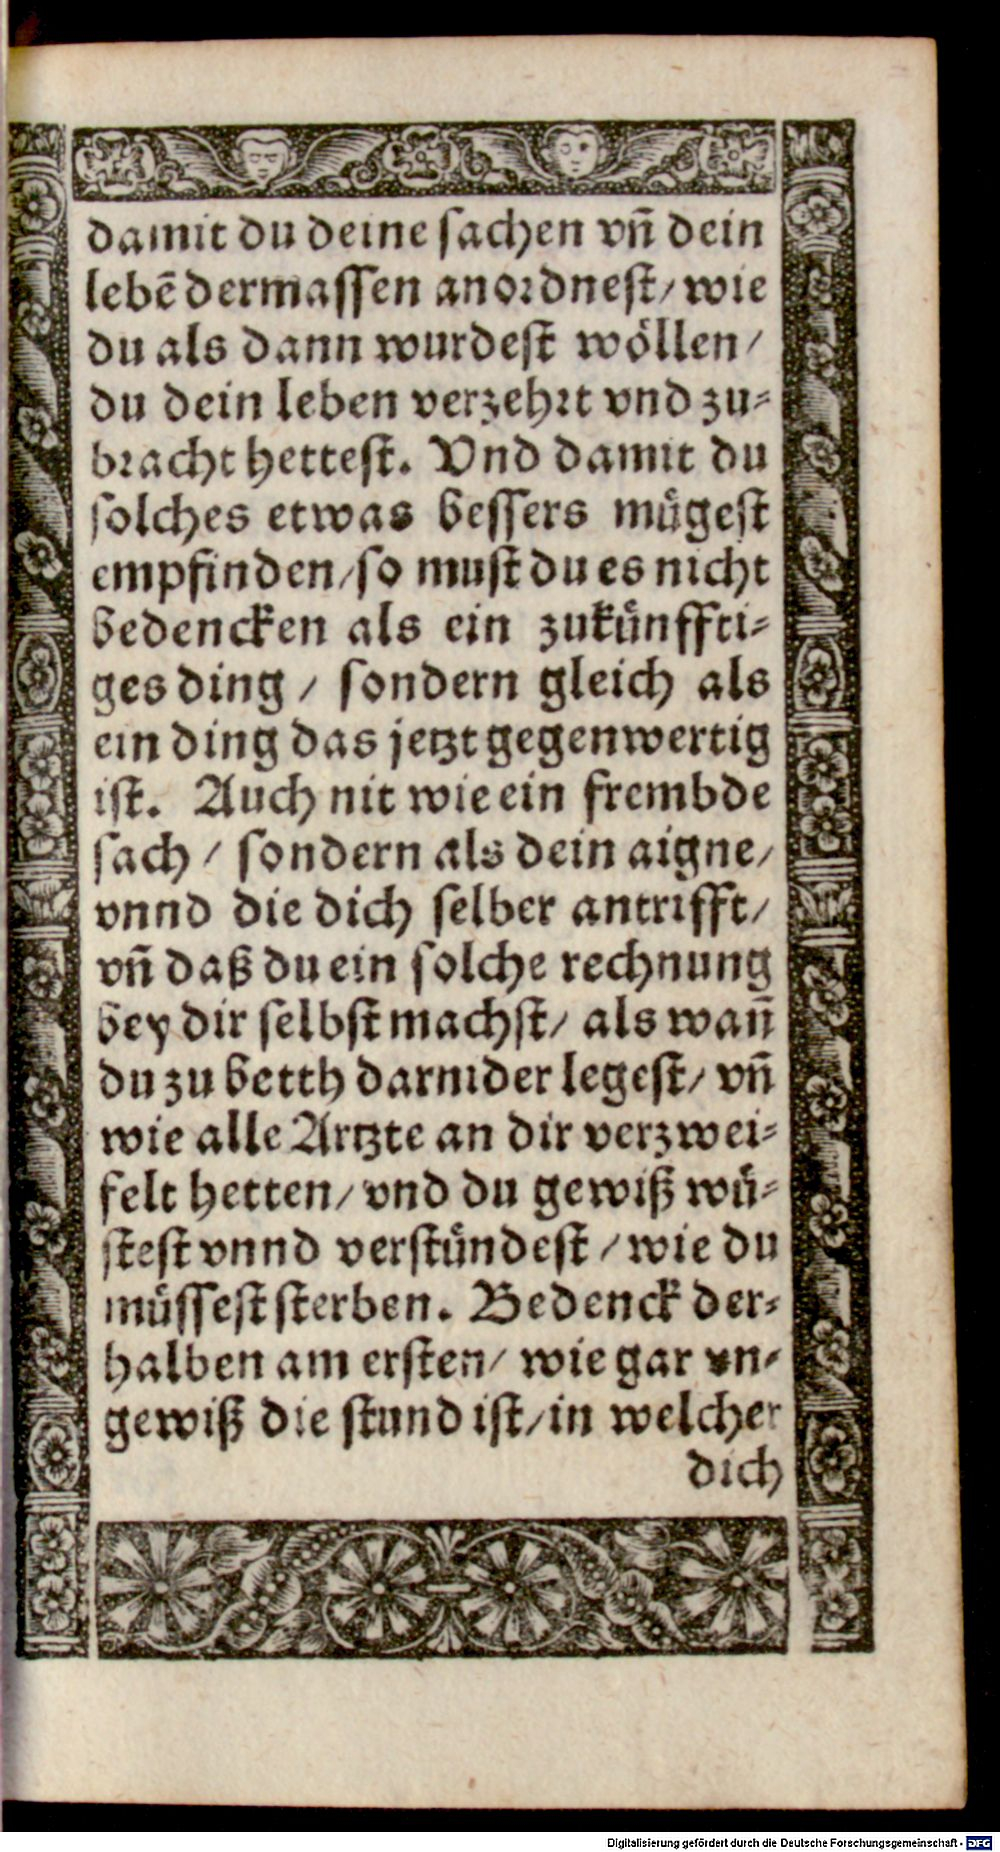 damit du deine sachen vñ dein
lebē dermassen anordnest/ wie
du als dann wurdest wöllen/
du dein leben verzehrt vnd zu-
bracht hettest. Vnd damit du
solches etwas bessers mügest
empfinden/ so must du es nicht
bedencken als ein zukünffti-
ges ding / sondern gleich als
ein ding das jetzt gegenwertig
ist. Auch nit wie ein frembde
sach / sondern als dein aigne/
vnnd die dich selber antrifft/
vñ daß du ein solche rechnung
bey dir selbst machst/ als wañ
du zu betth darnider legest/ vñ
wie alle Artzte an dir verzwei-
felt hetten/ vnd du gewiß wü-
stest vnnd verstündest / wie du
müssest sterben. Bedenck der-
halben am ersten/ wie gar vn-
gewiß die stund ist/ in welcher
dich
Digitalisierung gefördert durch die Deutsche Forschungsgemeinschaft - DFG